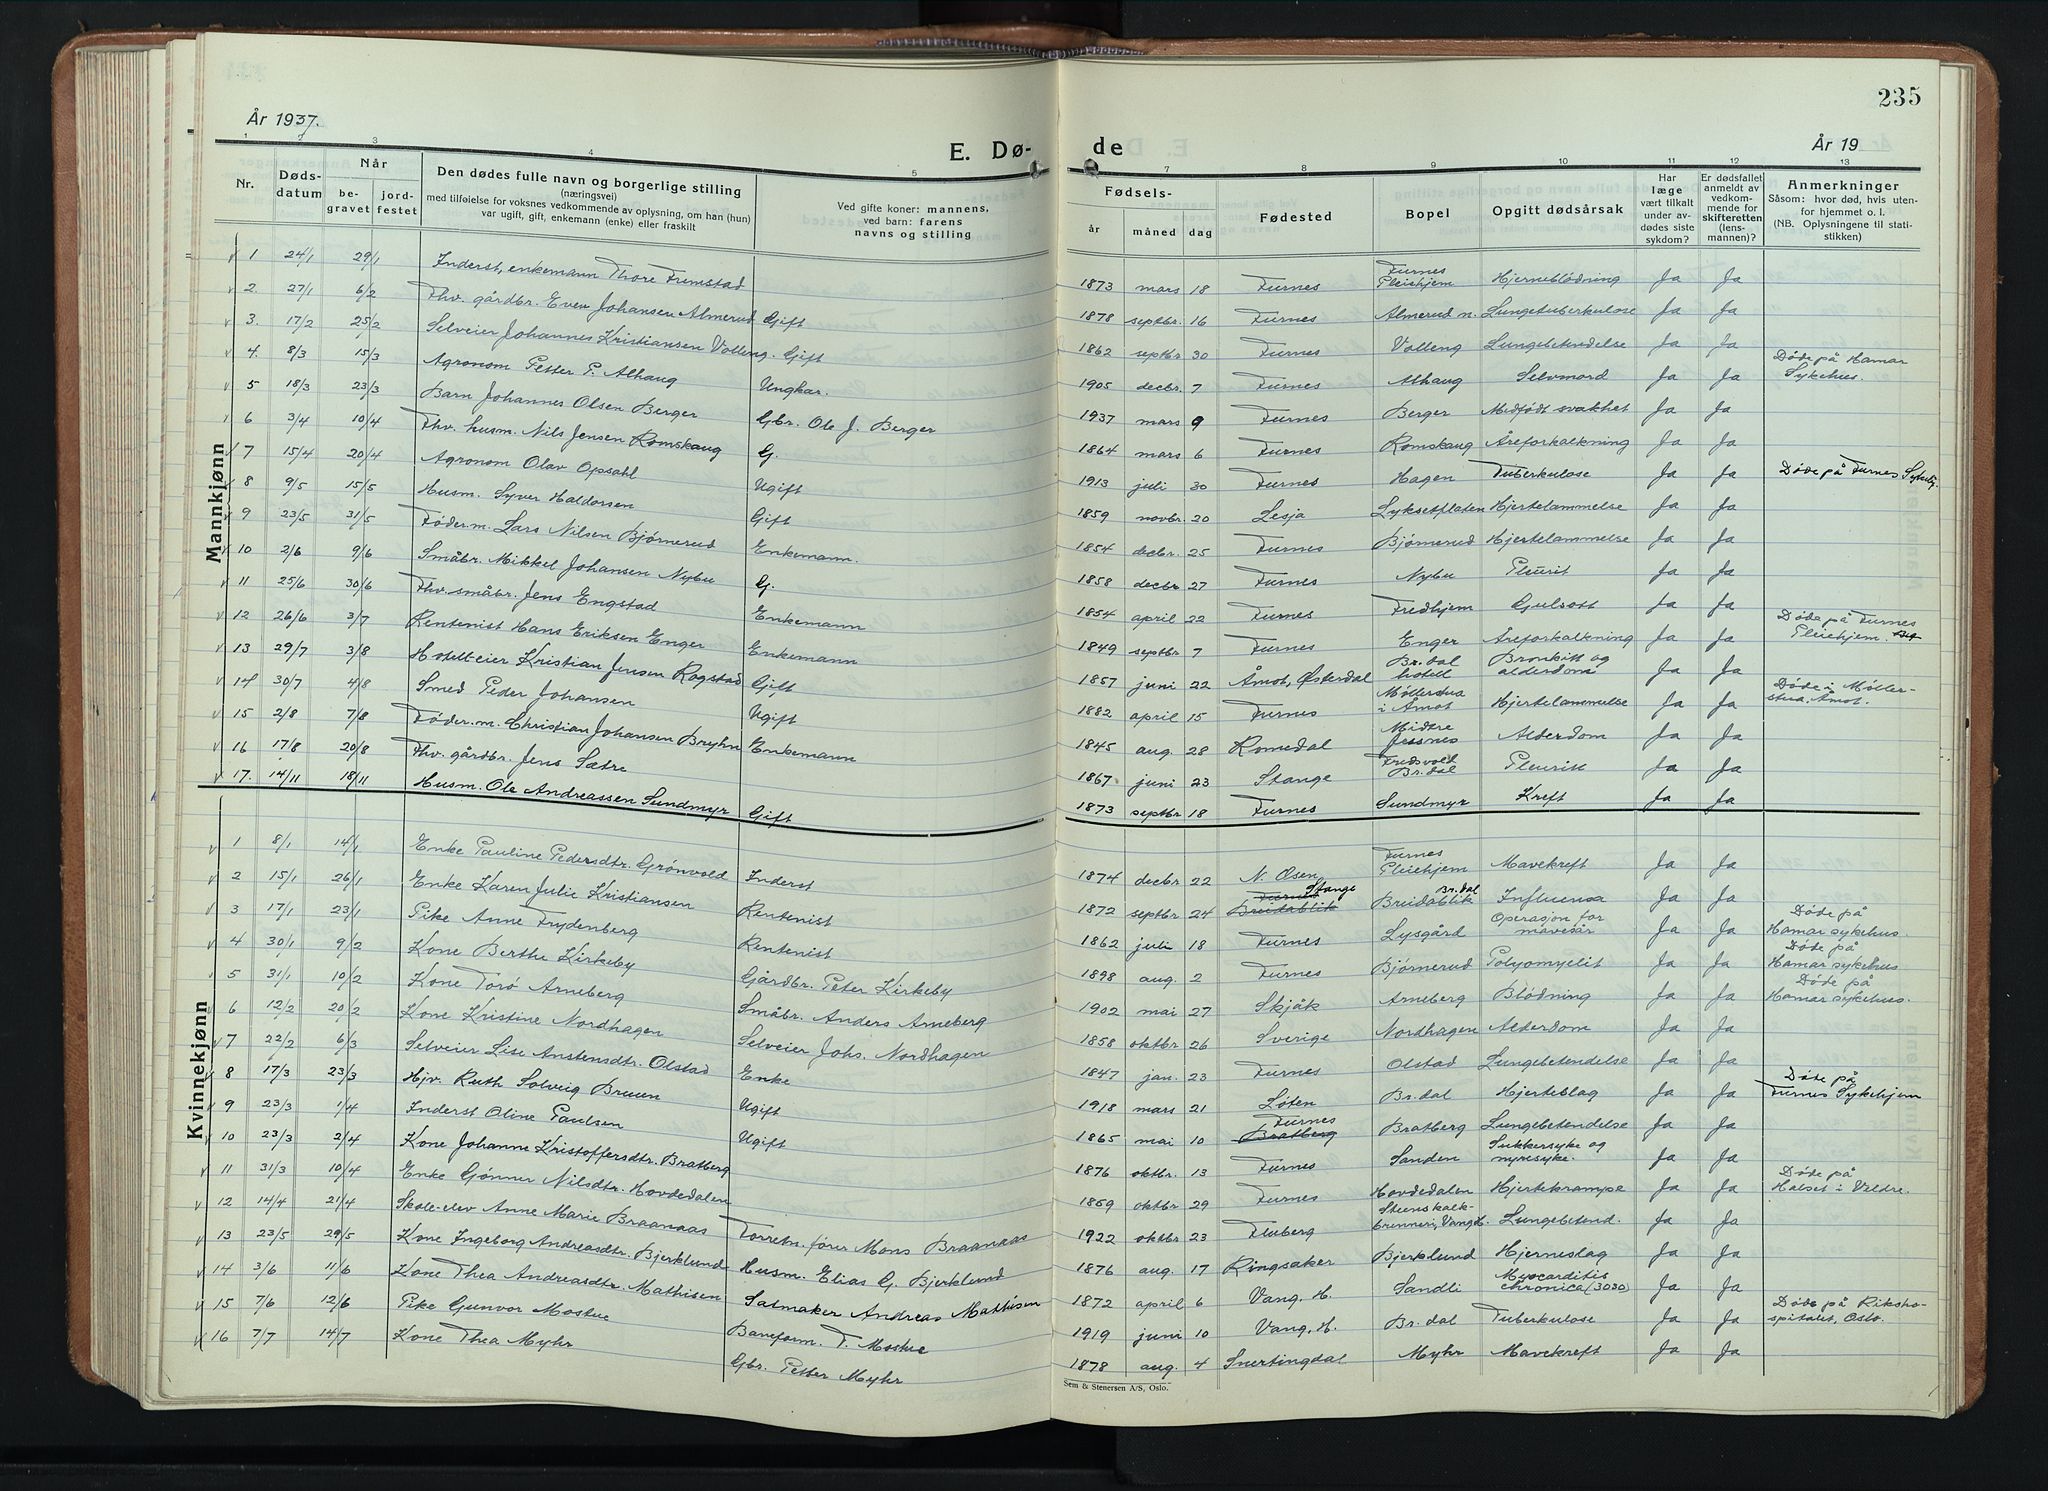 235
År 1937.
E. Døde
År 19
1 2 3 4 5 7 8 9 10 11 12 13
Nr.
Døds-datum
Når
be-gravet
jord-festet
Den dødes fulle navn og borgerlige stilling
(næringsvei)
med tilføielse for voksnes vedkommende av oplysning, om han (hun)
var ugift, gift, enkemann (enke) eller fraskilt
Ved gifte koner: mannens,
ved barn: farens
navns og stilling
Fødsels-
år måned dag
Fødested
Bopel
Opgitt dødsårsak
Har læge vært tilkalt under av-dødes siste sykdom?
Er dødsfallet anmeldt av vedkom-mende for skifteretten (lens-mannen)?
Anmerkninger
Såsom: hvor død, hvis uten-for hjemmet o. l.
(NB. Oplysningene til stati-stikken)
Mannkjønn
1 24/1 29/1 Inderst, enkemann Thore Frumstad 1873 mars 18 Furnes Furnes Pleiehjem Hjerneblødning Ja Ja
2. 27/1 6/2 Fhv. gårdbr. Even Johansen Almerud Gift 1878 septbr. 16 Furnes Almerud n. Lungetuberkulose Ja Ja
3. 17/2 25/2 Selveier Johannes Kristiansen Volleng. Gift 1862 septbr 30 Furnes Volleng Lungebetendelse Ja Ja
4. 8/3 15/3 Agronom Petter P. Alhaug Ungkar. 1905 decbr. 7 Furnes Alhaug Selvmord Ja Ja Døde på Hamar Sykehus.
5 18/3 23/3 Barn Johannes Olsen Berger Gbr. Ole J. Berger 1937 mars 9 Furnes Berger Medfødt svakhet Ja Ja
6 3/4 10/4 Fhv. husm. Nils Jensen Romskaug G. 1864 mars 6 Furnes Romskaug Åreforkalkning Ja Ja
7 15/4 20/4 Agronom Olav Opsahl Ugift 1913 juli 30 Furnes Hagen Tuberkulose Ja Ja Døde på Furnes Sykehj.
8 9/5 15/5 Husm. Syver Haldorsen Gift 1859 novbr. 20 Lesja Lyksetplaten Hjertelammelse Ja Ja
9 23/5 31/5 Føder.m. Lars Nilsen Bjørnerud Enkemann. 1854 decbr. 25 Furnes Bjørnerud Hjertelammelse Ja Ja
10 2/6 9/6 Småbr. Mikkel Johansen Nybu G. 1858 decbr 27 Furnes Nybu Pleurit Ja Ja
11 25/6 30/6 Fhv. småbr. Jens Engstad Enkemann 1854 april 22 Furnes Fredhjem Gulsott Ja Ja Døde på Furnes Pleiehjem.
12 26/6 3/7 Rentenist Hans Eriksen Enger Enkemann 1849 septbr 7 Furnes Enger Åreforkalkning Ja Ja
13 29/7 3/8 Hotelleier Kristian Jensen Rogstad Gift 1857 juni 22 Åmot, Østerdal Br.dal hotell Bronkitt og alderdom Ja Ja
14 30/7 4/8 Smed Peder Johansen Ugift 1882 april 15 Furnes Møllerstua i Åmot Hjertelammelse Ja Ja Døde i Møller-stua, Åmot.
15 2/8 7/8 Føder.m. Christian Johansen Bryhn Enkemann 1845 aug. 28 Romedal Midtre Jessnes Alderdom Ja Ja
16 17/8 20/8 Fhv. gårdbr. Jens Sætre 1867 juni 23 Stange Fredsvold Br.dal Pleuritt Ja Ja
17. 14/11 18/11 Husm. Ole Andreassen Sundmyr Gift 1873 septbr 18 Furnes Sundmyr Kreft Ja Ja
Kvinnekjønn
1 8/1 14/1 Enke Pauline Pedersdtr. Grønvold Inderst 1874 decbr 22 N. Osen Furnes Pleiehjem Mavekreft Ja Ja
2 15/1 26/1 Enke Karen Julie Kristiansen Rentenist 1872 septbr 24 Furnes Breidablik Stange Breidablik Br.dal Influensa Ja Ja
3 17/1 23/1 Pike Anne Frydenberg Rentenist 1862 juli 18 Furnes Lysgård Operasjon for mavesår Ja Ja Døde på Hamar sykehus.
4 30/1 9/2 Kone Berthe Kirkeby Gårdbr. Peter Kirkeby 1898 aug. 2 Furnes Bjørnerud Polyomyelit Ja Ja Døde på Hamar sykehus
5 31/1 10/2 Kone Torø Arneberg Småbr. Anders Arneberg 1902 mai 27 Skjåk Arneberg Blødning Ja Ja Døde på Hamar sykehus.
6 12/2 20/2 Kone Kristine Nordhagen Selveier Johs. Nordhagen 1858 oktbr 26 Sverige Nordhagen Alderdom Ja Ja
7 22/2 6/3 Selveier Lise Anstensdtr. Olstad Enke 1847 jan. 23 Furnes Olstad Lungebetendelse Ja Ja
8 17/3 23/3 Hjv. Ruth Solveig Bruen Ugift 1918 mars 21 Løten Br.dal Hjerteslag Ja Ja Døde på Furnes Sykehjem
9 23/3 1/4 Inderst Oline Paulsen Ugift 1865 mai 10 Bratberg Furnes Bratberg Lungebetendelse Ja Ja
10 23/3 2/4 Kone Johanne Kristoffersdtr. Bratberg 1876 oktbr. 13 Furnes Sanden Sukkersyke og nyresyke. Ja Ja
11 31/3 10/4 Enke Gønner Nilsdtr. Hovdedalen 1859 oktbr 29 Furnes Hovdedalen Hjertekrampe Ja Ja Døde på Halset i Veldre.
12 14/4 21/4 Skole-elev Anne Marie Braanaas Forretn.fører Mons Braanaas 1922 oktbr 23 Fluberg Steenskalk-brenneri, Vang H. Lungebetend. Ja Ja
13 23/5 29/5 Kone Ingeborg Andreasdtr. Bjerklund Husm. Elias G. Bjerklund 1876 aug. 17 Ringsaker Bjerklund Hjerneslag Ja Ja
14 3/6 11/6 Kone Thea Andreasdtr. Mathisen Salmaker Andreas Mathisen 1872 april 6 Vang, H. Sandli Myocarditis chronica (3030) Ja Ja
15 7/6 12/6 Pike Gunvor Mostue Baneform. T. Mostue 1919 juni 10 Vang, H. Br.dal Tuberkulose Ja Ja Døde på Riksho-spitalet, Oslo.
16 7/7 14/7 Kone Thea Myhr Gbr. Petter Myhr 1878 aug. 4 Snertingdal Myhr Mavekreft Ja Ja
Sem & Stenersen A/S, Oslo.